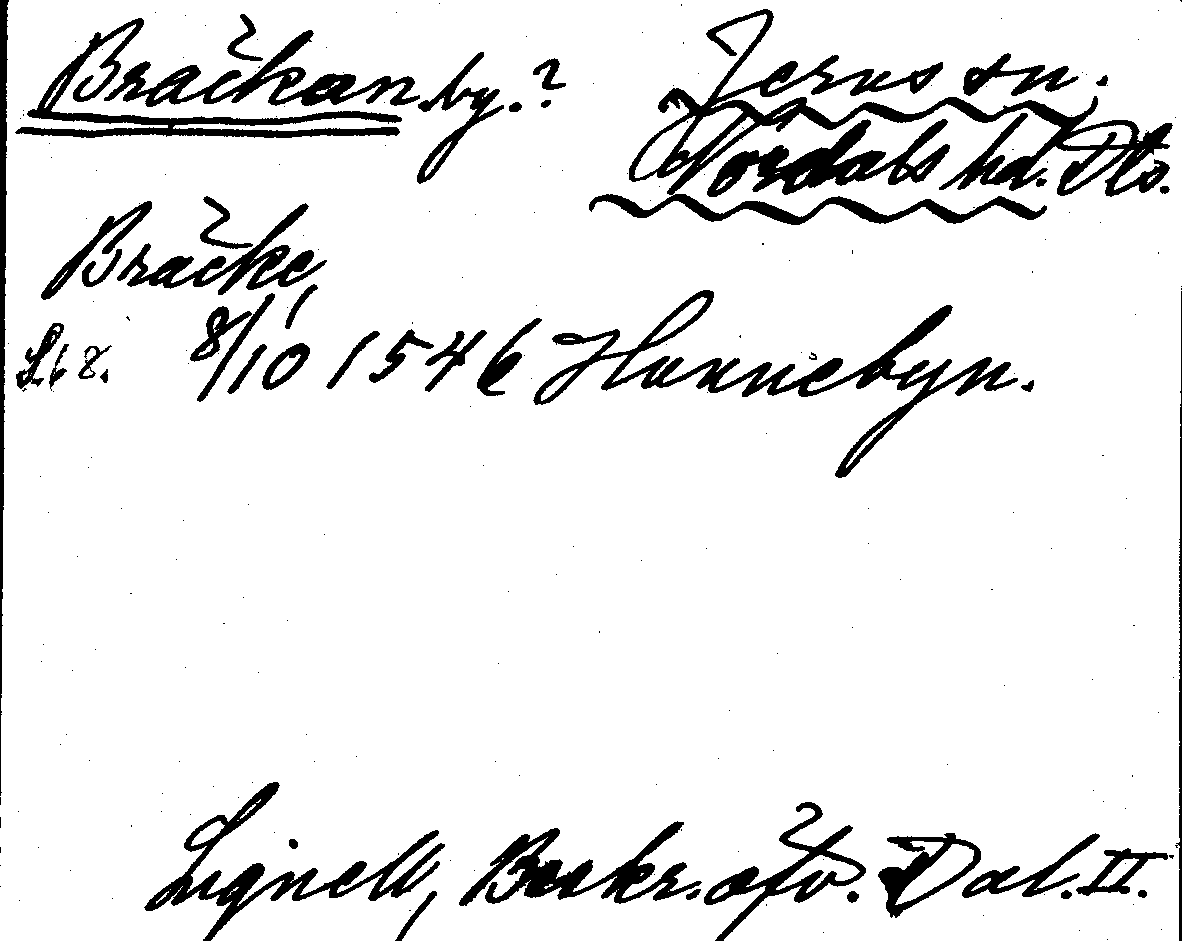 Bräckan. by.?
Jerns sn.
Nordals hd. Dls.
Bräcke,
S. 68. 8/10 1546 Hannebyn.
Lignell, Beskr. öfv. Dal. II.